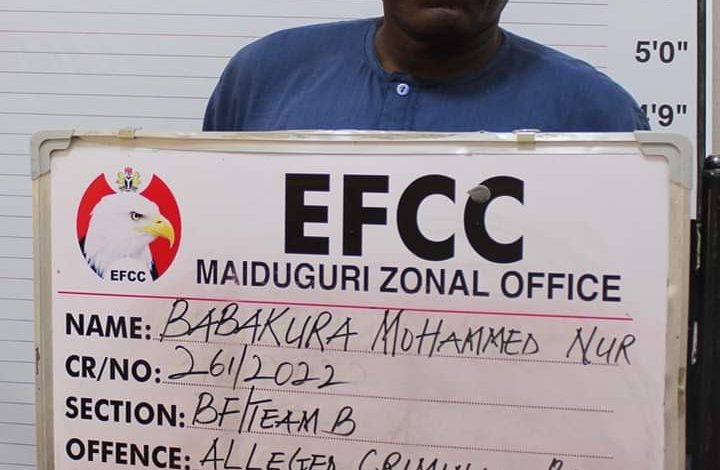 5'0"
4'9"
EFCC
EFCC
MAIDUGURI ZONAL OFFICE
NAME: BABAKURA MOHAMMED NUR
CR/NO: 261/2022
SECTION: BF/TEAM B
OFFENCE: ALLEGED